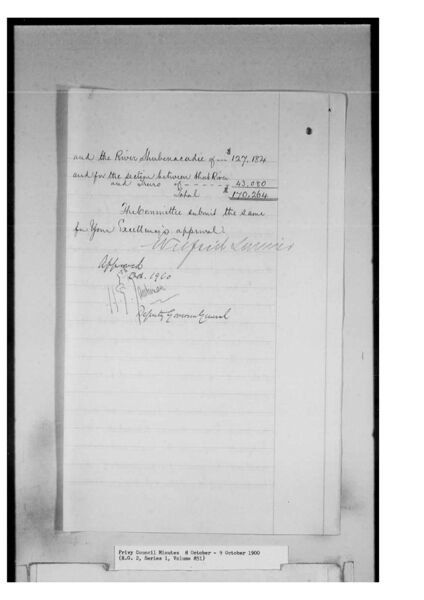 and the River Shubenacadie of - - $ 127,184
and for the section between that River
and Truro of - - - - - - 43,080
Total $ 170,264
The Committee submit the same
for Your Excellency's approval.
Wilfrid Laurier
Approved
Oct. 1900
Deputy Governor General
Privy Council Minutes 8 October - 9 October 1900
(R.G. 2, Series 1, Volume 851)